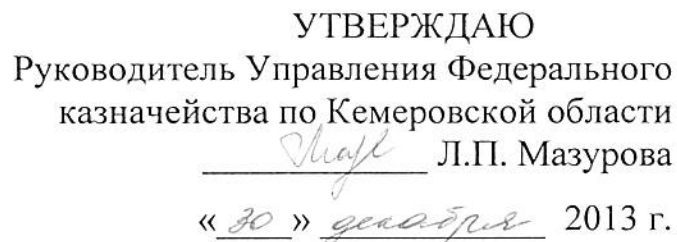 УТВЕРЖДАЮ
Руководитель Управления Федерального
казначейства по Кемеровской области
Л.П. Мазурова
«30» декабря 2013 г.